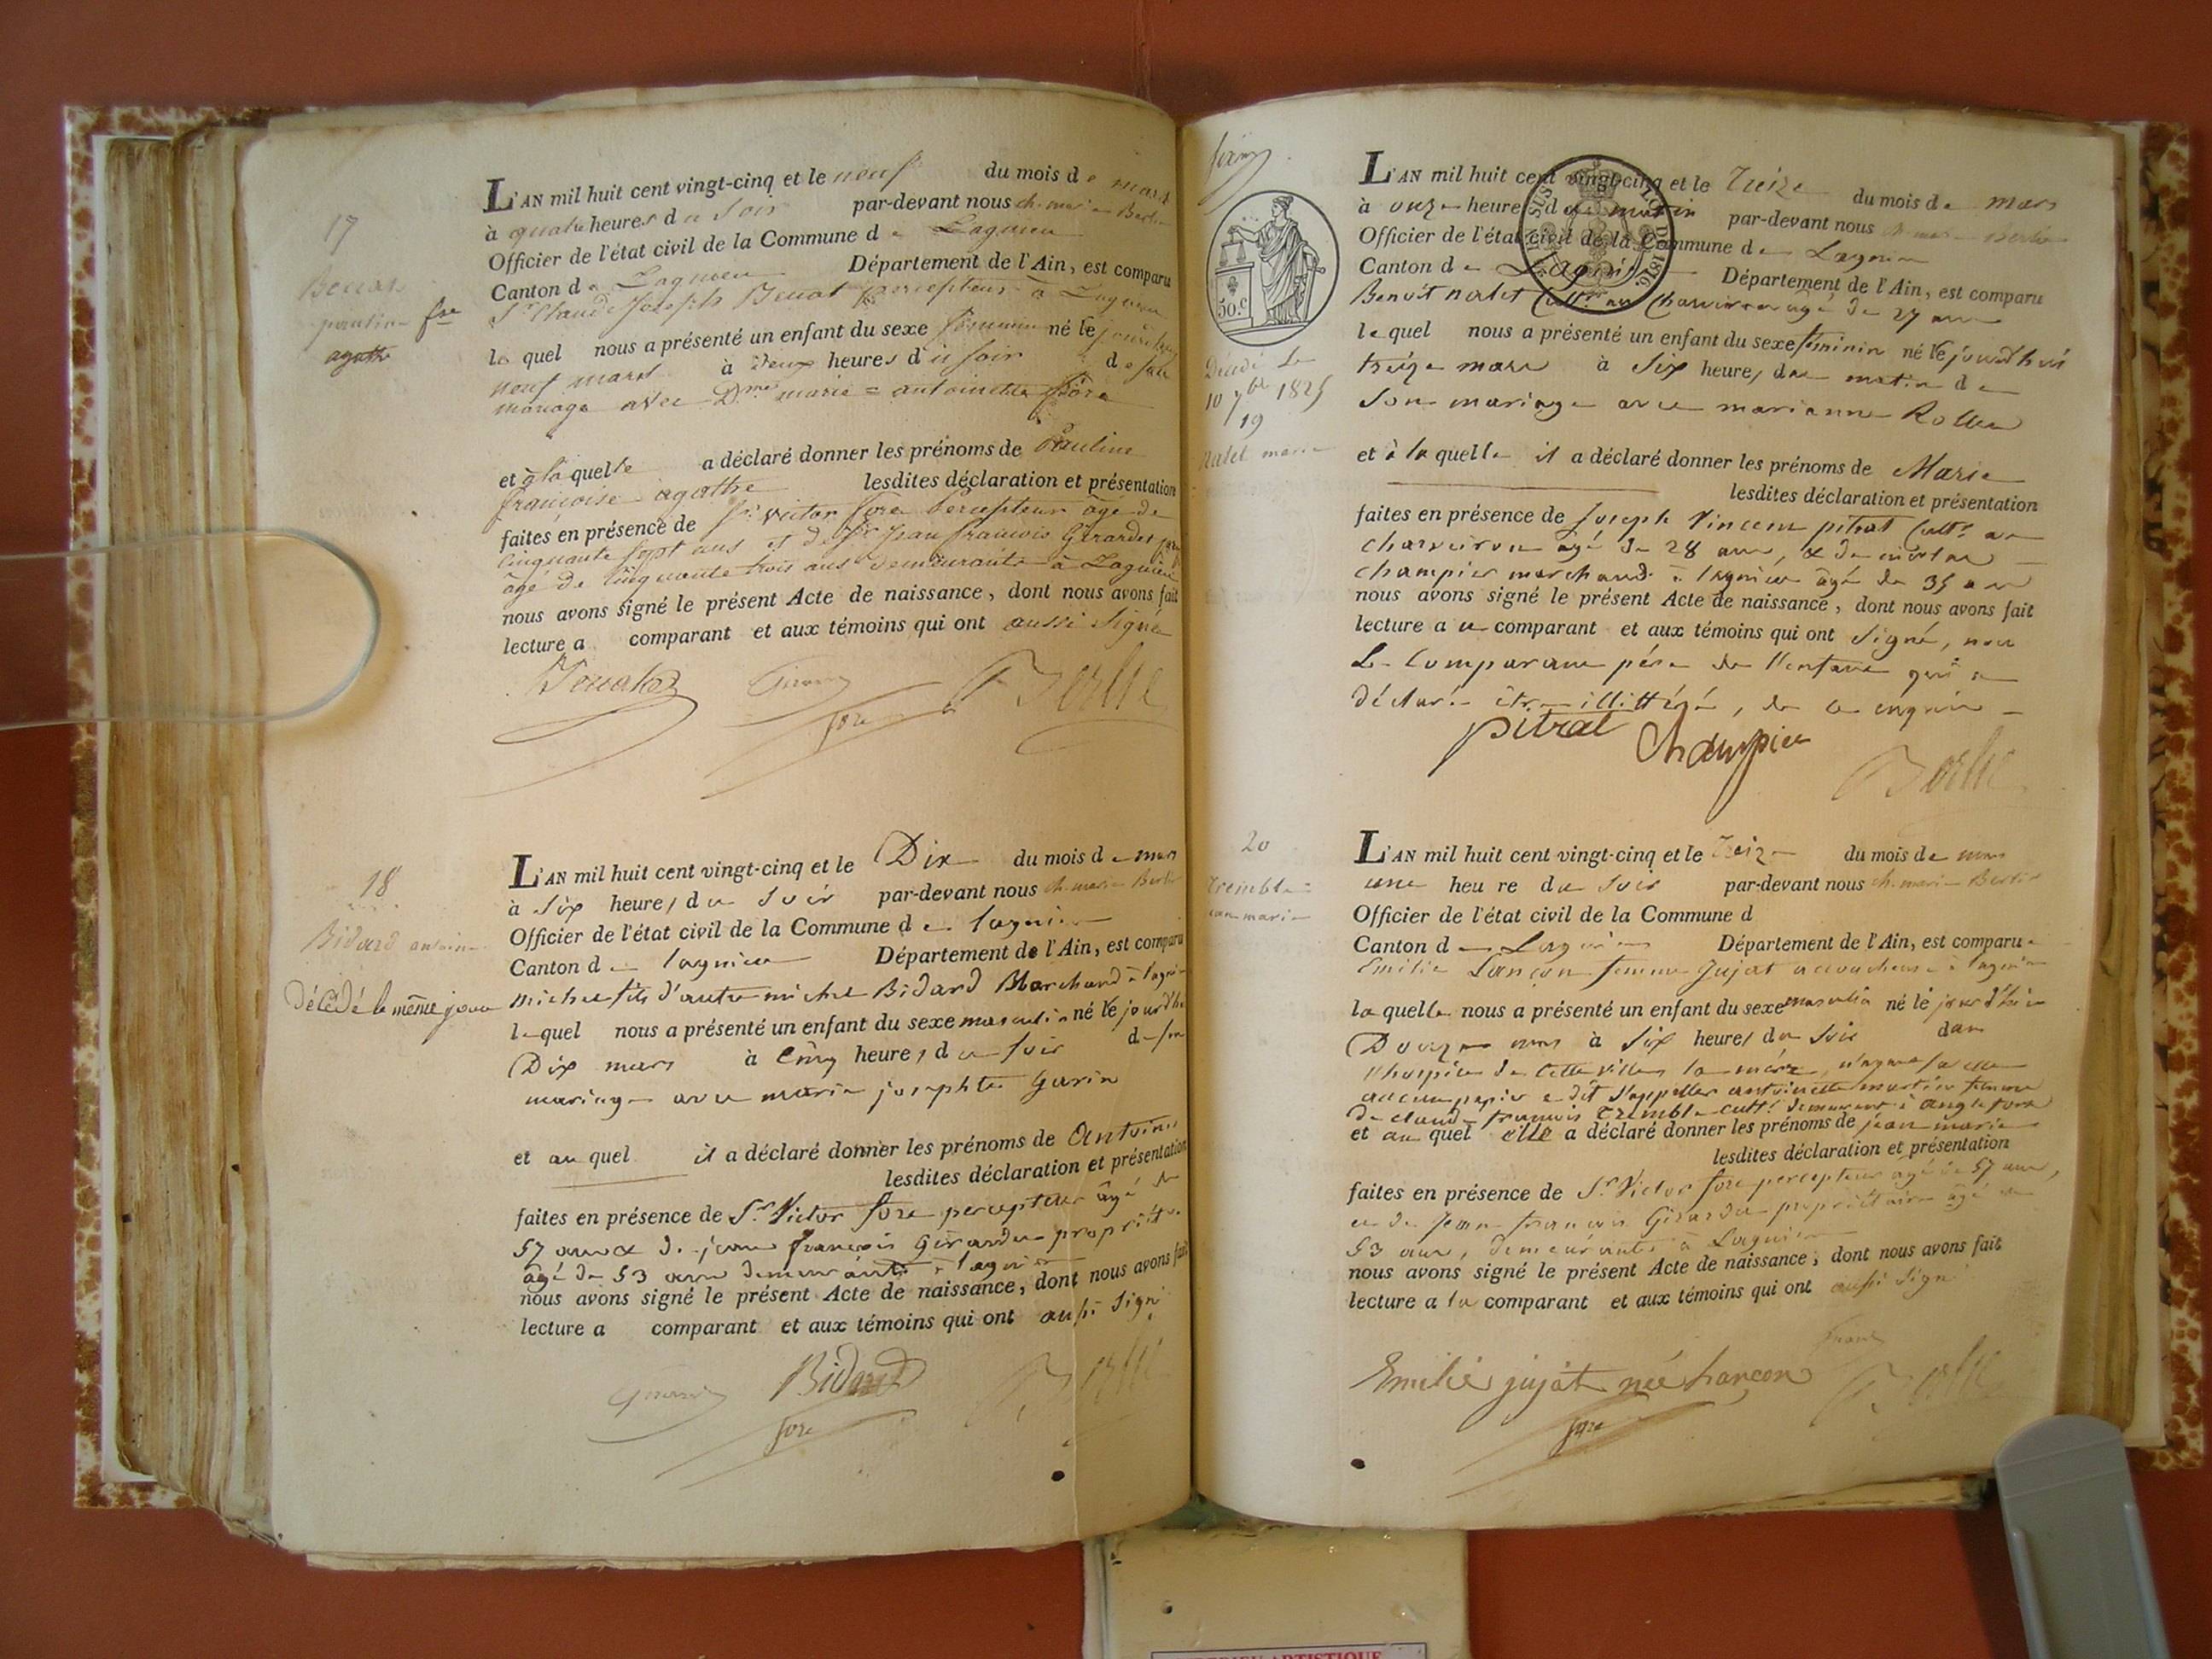 17
pauline fse
agathe
L'AN mil huit cent vingt-cinq et le neuf du mois de mars
à quatre heures du soir par-devant nous ch. marie
Officier de l'état civil de la Commune de Lagnieu
Canton de Lagnieu Département de l'Ain, est comparu
Sr Claude Joseph percepteur à Lagnieu
le quel nous a présenté un enfant du sexe féminin né le
neuf mars à deux heures du soir de son
mariage avec Dme marie = antoinette fore
et à la quelle a déclaré donner les prénoms de Pauline
françoise agathe lesdites déclaration et présentation
faites en présence de Sr victor fore Percepteur âgé de
cinquante sept ans et de Sr jean françois Girardet
âgé de cinquante trois ans demeurants à Lagnieu
nous avons signé le présent Acte de naissance, dont nous avons fait
lecture a comparant et aux témoins qui ont aussi signé
fore
18
Bidard antoine
décédé le même jour
L'AN mil huit cent vingt-cinq et le Dix du mois de mars
à Six heures du soir par-devant nous ch. marie
Officier de l'état civil de la Commune de lagnieu
Canton de lagnieu Département de l'Ain, est comparu
michel fils d'autre michel Bidard Marchand à lagnieu
lequel nous a présenté un enfant du sexe masculin né le jourd'hui
Dix mars à cinq heures du soir de son
mariage avec marie josephte Garin
et au quel il a déclaré donner les prénoms de Antoine
lesdites déclaration et présentation
faites en présence de Sr Victor fore percepteur âgé de
57 ans & de jean françois Girardet
âgé de 53 ans demeurants à lagnieu
nous avons signé le présent Acte de naissance, dont nous avons fait
lecture a comparant et aux témoins qui ont aussi signé
Bidard
fore
50.c
1816
Décédé le
10 7bre 1825
19
Natet marie
L'AN mil huit cent vingt-cinq et le Treize du mois de mars
à onze heures du matin par-devant nous ch. marie
Officier de l'état civil de la Commune de Lagnieu
Canton de Lagnieu Département de l'Ain, est comparu
Benoit natet Cultr au Charveiron âgé de 27 ans
le quel nous a présenté un enfant du sexe féminin né le jourd'hui
treize mars à Six heures du matin de
Son mariage avec marianne
et à la quelle il a déclaré donner les prénoms de Marie
lesdites déclaration et présentation
faites en présence de Joseph Vincent pitrat Cultr au
charveiron âgé de 28 ans, & de nicolas
champier marchand à lagnieu âgé de 35 ans
nous avons signé le présent Acte de naissance, dont nous avons fait
lecture a ce comparant et aux témoins qui ont Signé, non
Le Comparant père de l'enfant qui a
déclaré être illittéré, de ce enquis
pitrat Champier
20
Tremble
L'AN mil huit cent vingt-cinq et le Treize du mois de mars
une heure du soir par-devant nous ch. marie
Officier de l'état civil de la Commune d
Canton de Lagnieu Département de l'Ain, est comparue
Emilie Lançon femme Jujat accoucheuse à lagnieu
la quelle nous a présenté un enfant du sexe masculin né le jourd'hui
Douze mars à Six heures du Soir dans
l'hospice de cette ville, la mère, n'ayant
aucun papier a dit s'appeller antoinette martin femme
de claude françois Tremble cultr demeurant à anglefort
et au quel elle a déclaré donner les prénoms de jean marie
lesdites déclaration et présentation
faites en présence de Sr Victor fore percepteur âgé de 57 ans,
et de Jean françois Girardet propriétaire âgé de
53 ans, demeurants à Lagnieu
nous avons signé le présent Acte de naissance, dont nous avons fait
lecture a la comparant et aux témoins qui ont aussi signé
Emilie jujat née lançon
fore
ARTISTIQUE